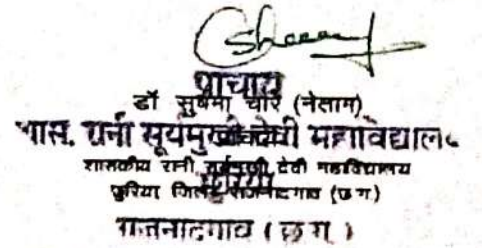 प्राचार्य
डॉ सुषमा चौरे (नेताम)
शास. रानी सूर्यमुखी देवी महाविद्यालय
शासकीय रानी सूर्यमुखी देवी महाविद्यालय
छुरिया
छुरिया जिला राजनांदगाव (छ ग)
राजनादगाव (छ ग )